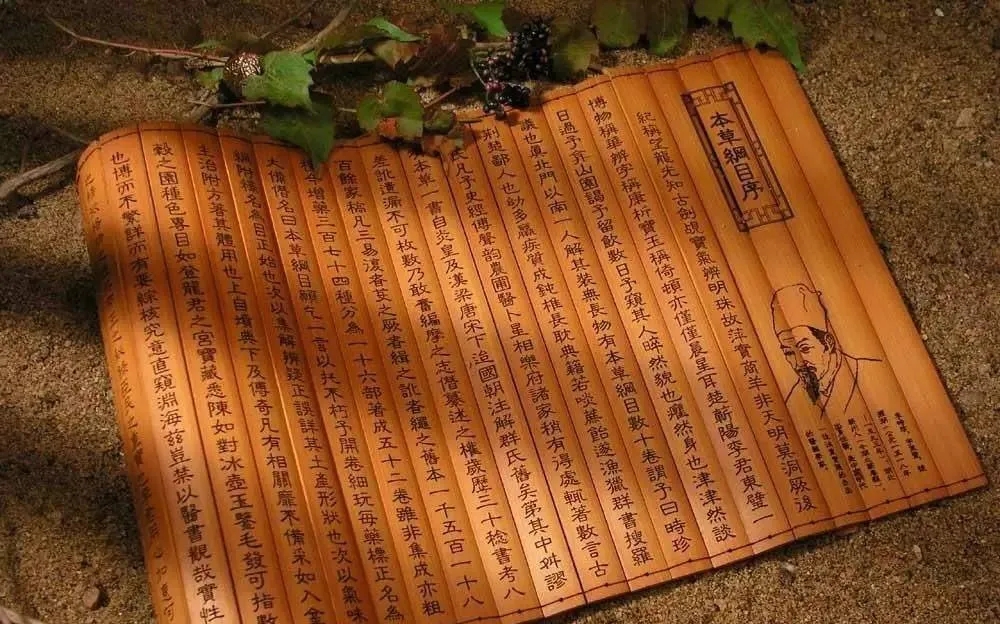 本草綱目序
紀稱望龍光知古劍覘寶氣辨明珠故萍實商羊非天明莫洞厥後
博物稱華辨字稱康析寶玉稱倚頓亦僅僅晨星耳楚蘄陽李君東璧一
日過予弇山園謁予留飲數日予窺其人睟然貌也癯然身也津津然談
議也眞北門以南一人解其裝無長物有本草綱目數十卷謂予曰時珍
荊楚鄙人也幼多羸疾質成鈍椎長耽典籍若啖蔗飴遂漁獵群書搜羅
氏凡子史經傳聲韵農圃醫卜星相樂府諸家稍有得處輒著數言古
本草一書自炎皇及漢梁唐宋下治國朝注解群氏舊矣第其中舛謬
差訛遺漏不可枚數乃敢奮編摩之志僭纂述之權歲歷三十稔書考八
百餘家稿凡三易復者芟之厥者緝之訛者繩之舊本一千五百一十八
今增藥三百七十四種分為一十六部著成五十二卷雖非集成亦粗
大備僭名曰本草綱目願乞一言以托不朽予開卷細玩每藥標正名為
綱附釋名為目正始也次以集解辨疑正誤詳其土產形狀也次以氣味
主治附方著其體用也上自墳典下及傳奇凡有相關靡不備采如入金
穀之園種色奪目如登龍君之宮寶藏悉陳如對冰壺玉鑒毛發可指數
也博亦不繁詳亦有要綜核究竟直窺淵海茲豈禁以醫書觀哉實性